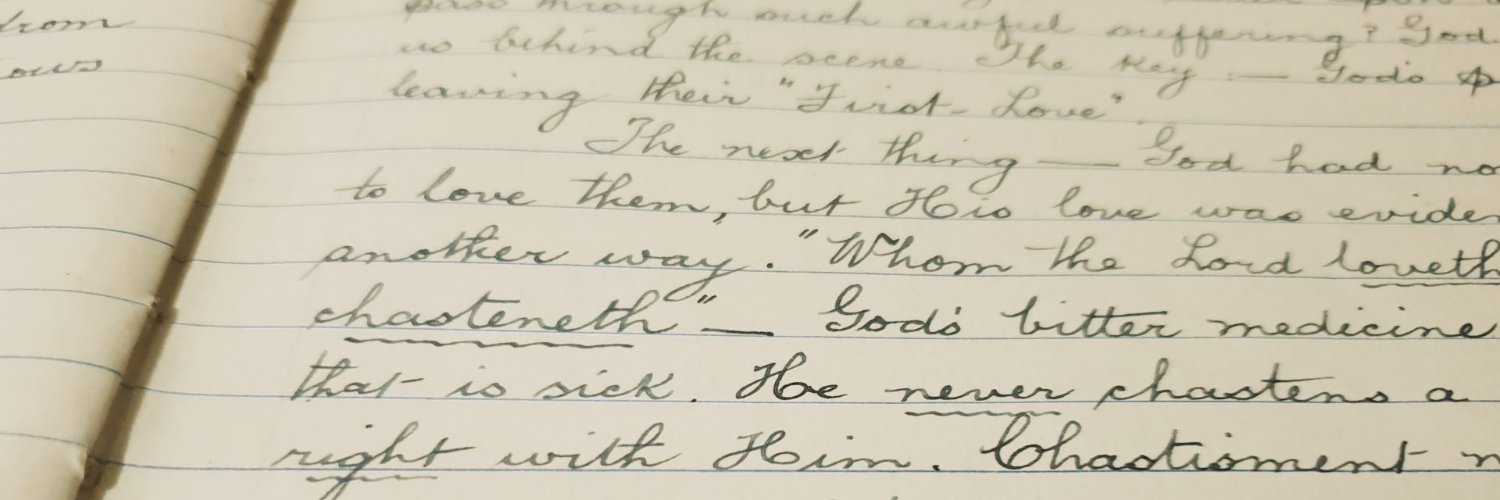 from
ows
pass through such awful suffering? God
us behind the scene. The key — God's
leaving their "First-Love".
The next thing — God had no
to love them, but His love was eviden
another way. "Whom the Lord loveth
chasteneth" — God's bitter medicine
that is sick. He never chastens a
right with Him. Chastisment